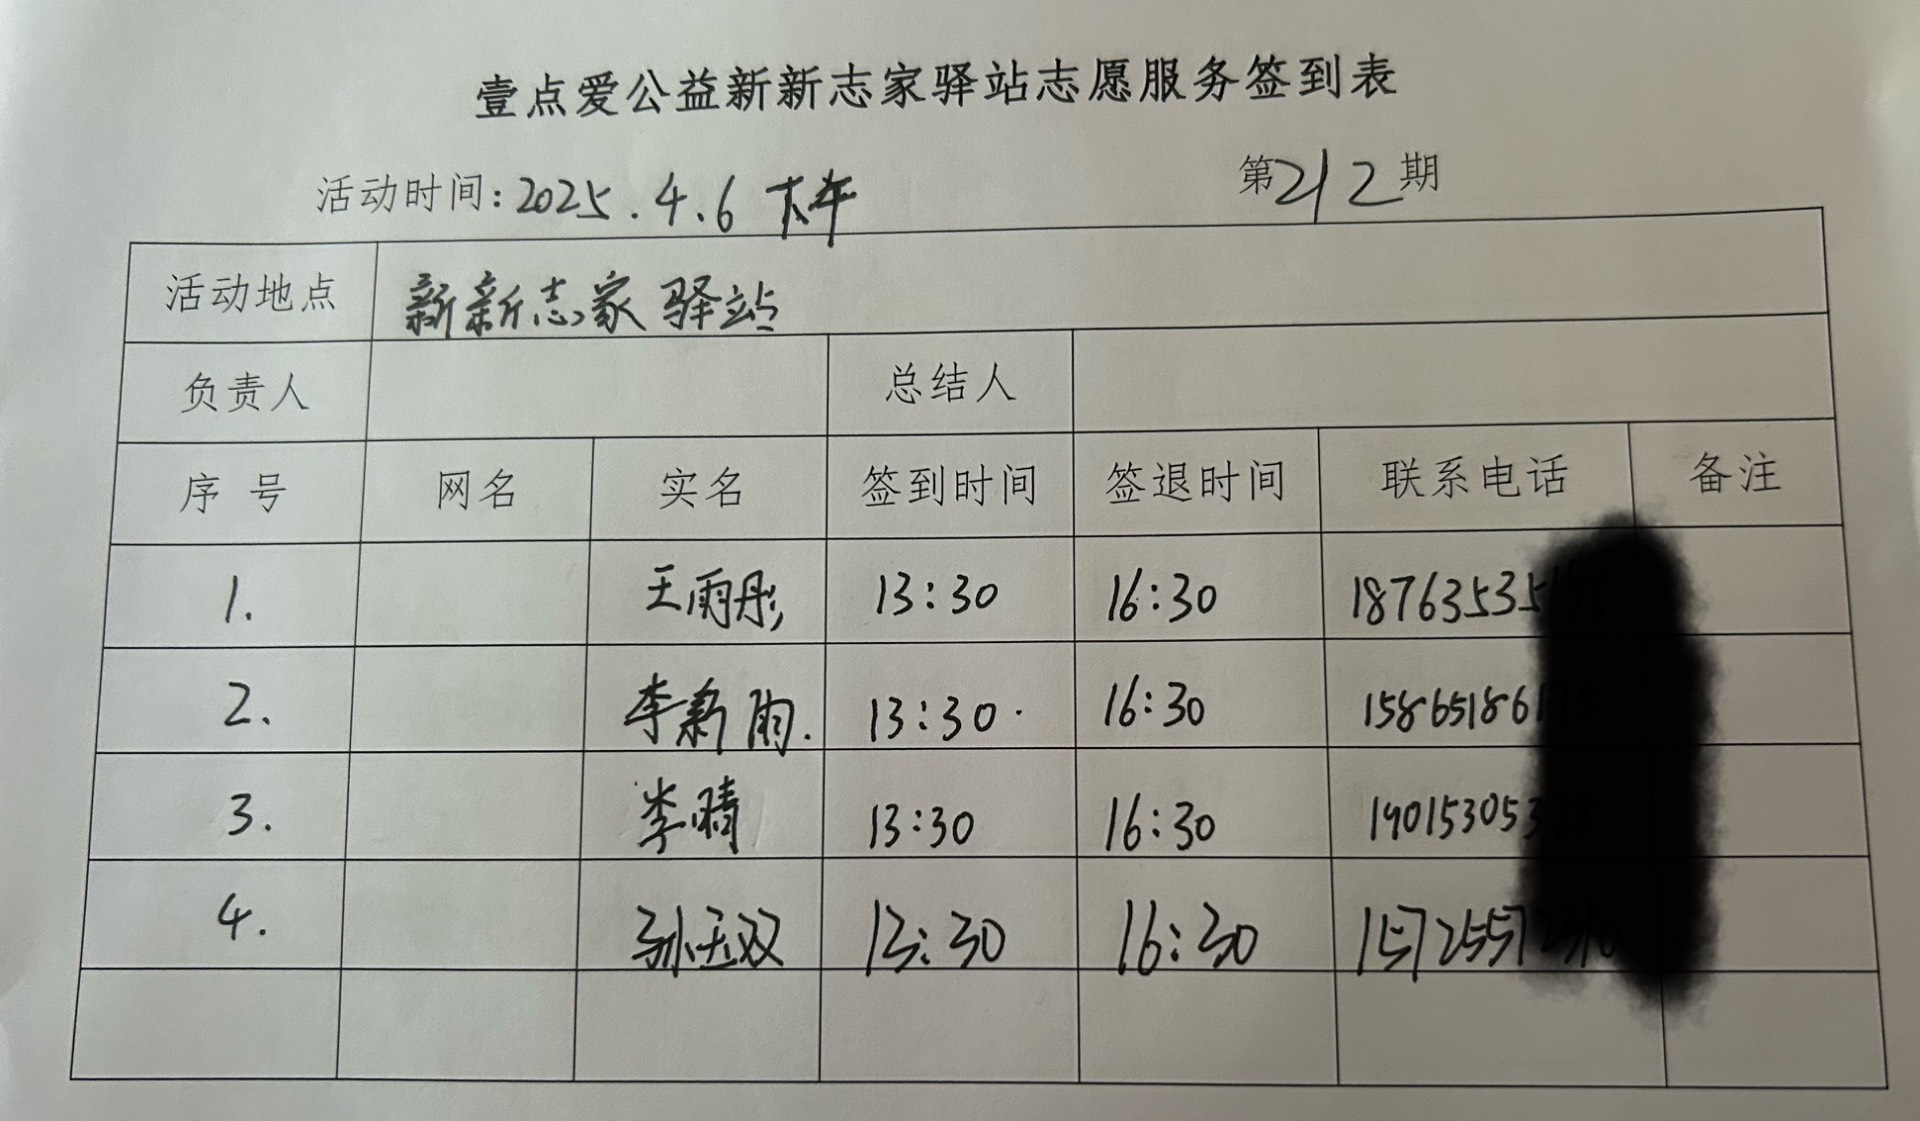 壹点爱公益新新志家驿站志愿服务签到表
活动时间:2025.4.6 下午 第212期
活动地点 新新志家驿站
负责人 总结人
序号 网名 实名 签到时间 签退时间 联系电话 备注
1. 王雨彤 13:30 16:30 18763535
2. 李新雨. 13:30 16:30 158651861
3. 李晴 13:30 16:30 190153053
4. 孙玉双 13:30 16:30 15725572